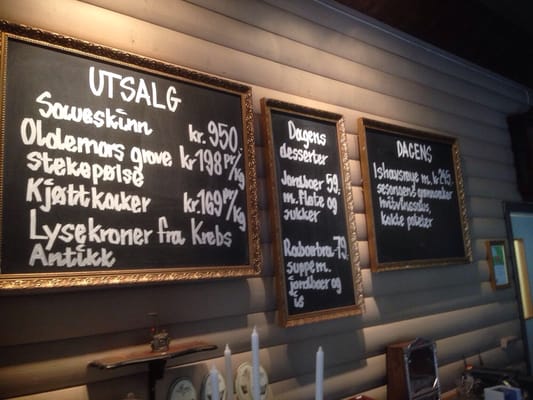 UTSALG
Saueskinn kr. 950,-
Oldemors grove kr 198 pr/kg
stekepølse
Kjøttkaker kr. 169 pr/kg
Lysekroner fra Krebs
Antikk
Dagens
desserter
Jordbær 59,-
m. fløte og
sukker
Rabarbra- 79,-
suppe m.
jordbær og
is
DAGENS
Ishavsrøye m. kr. 245,-
sesongens grønnsaker
hvitvinssaus,
kokte poteter